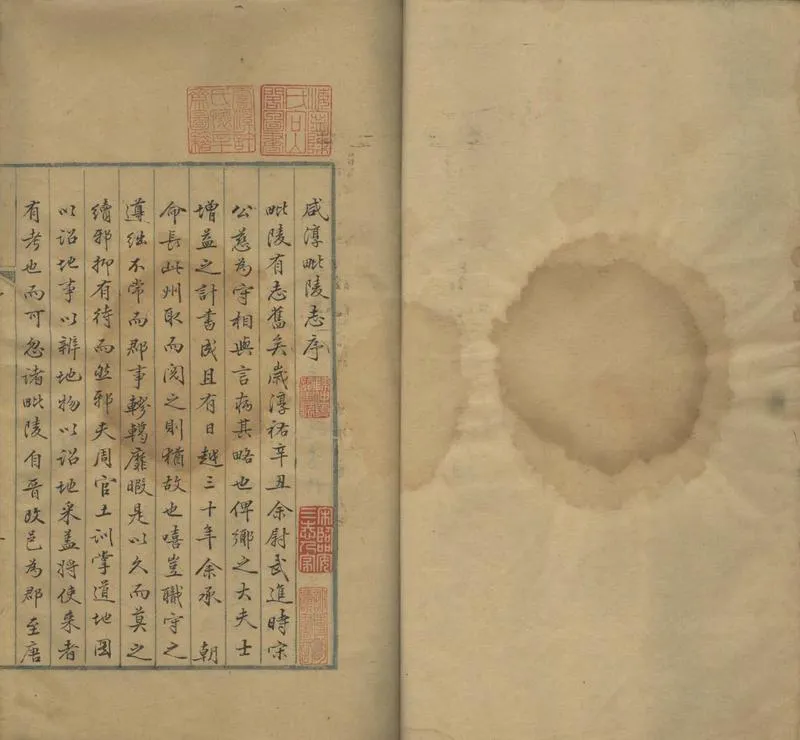 咸淳毗陵志序
毗陵有志舊矣歲淳祐辛丑余尉武進時宋
公慈為守相與言病其略也俾鄉之大夫士
增益之計書成且有日越三十年余承 朝
命長此州取而閱之則猶故也嘻豈職守之
遵絀不常而郡事轇轕靡暇是以久而莫之
續邪抑有待而然邪夫周官土訓掌道地圖
以詔地事以辨地物以詔地釆盖將使来者
有考也而可忽諸毗陵自晉改邑為郡至唐
宋臨安三志人家